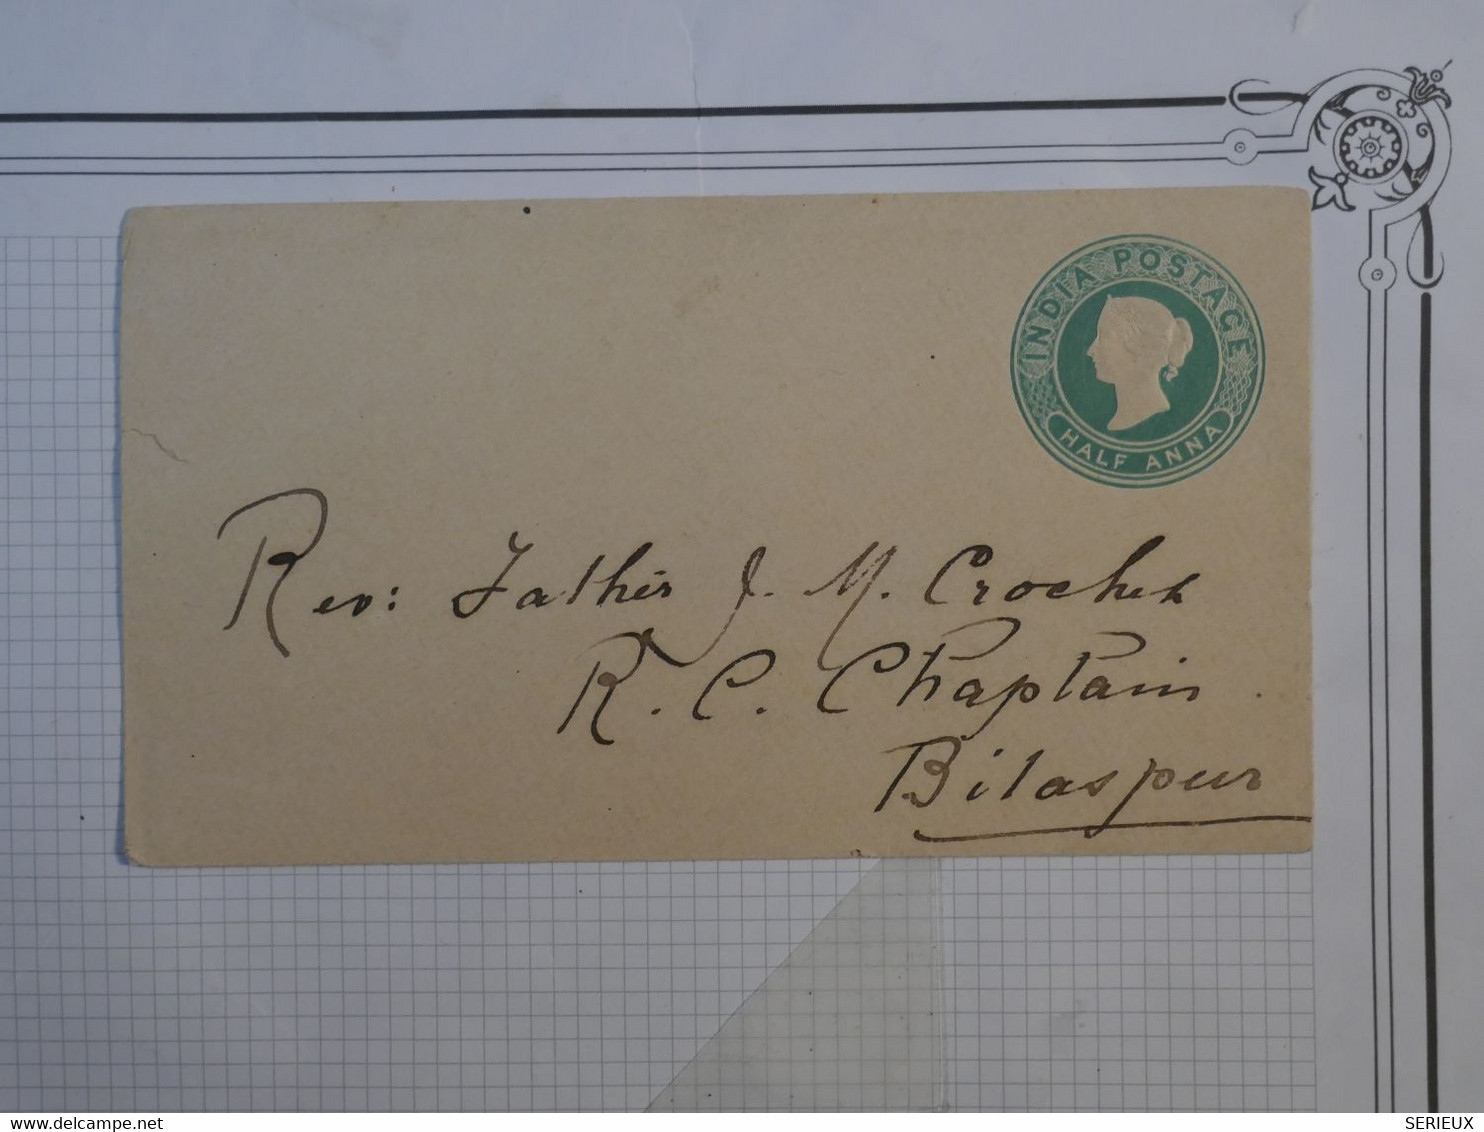 INDIA POSTAGE
HALF ANNA
Rev: Father J. M. Crochet
R. C. Chaplain
Bilaspur
SERIEUX